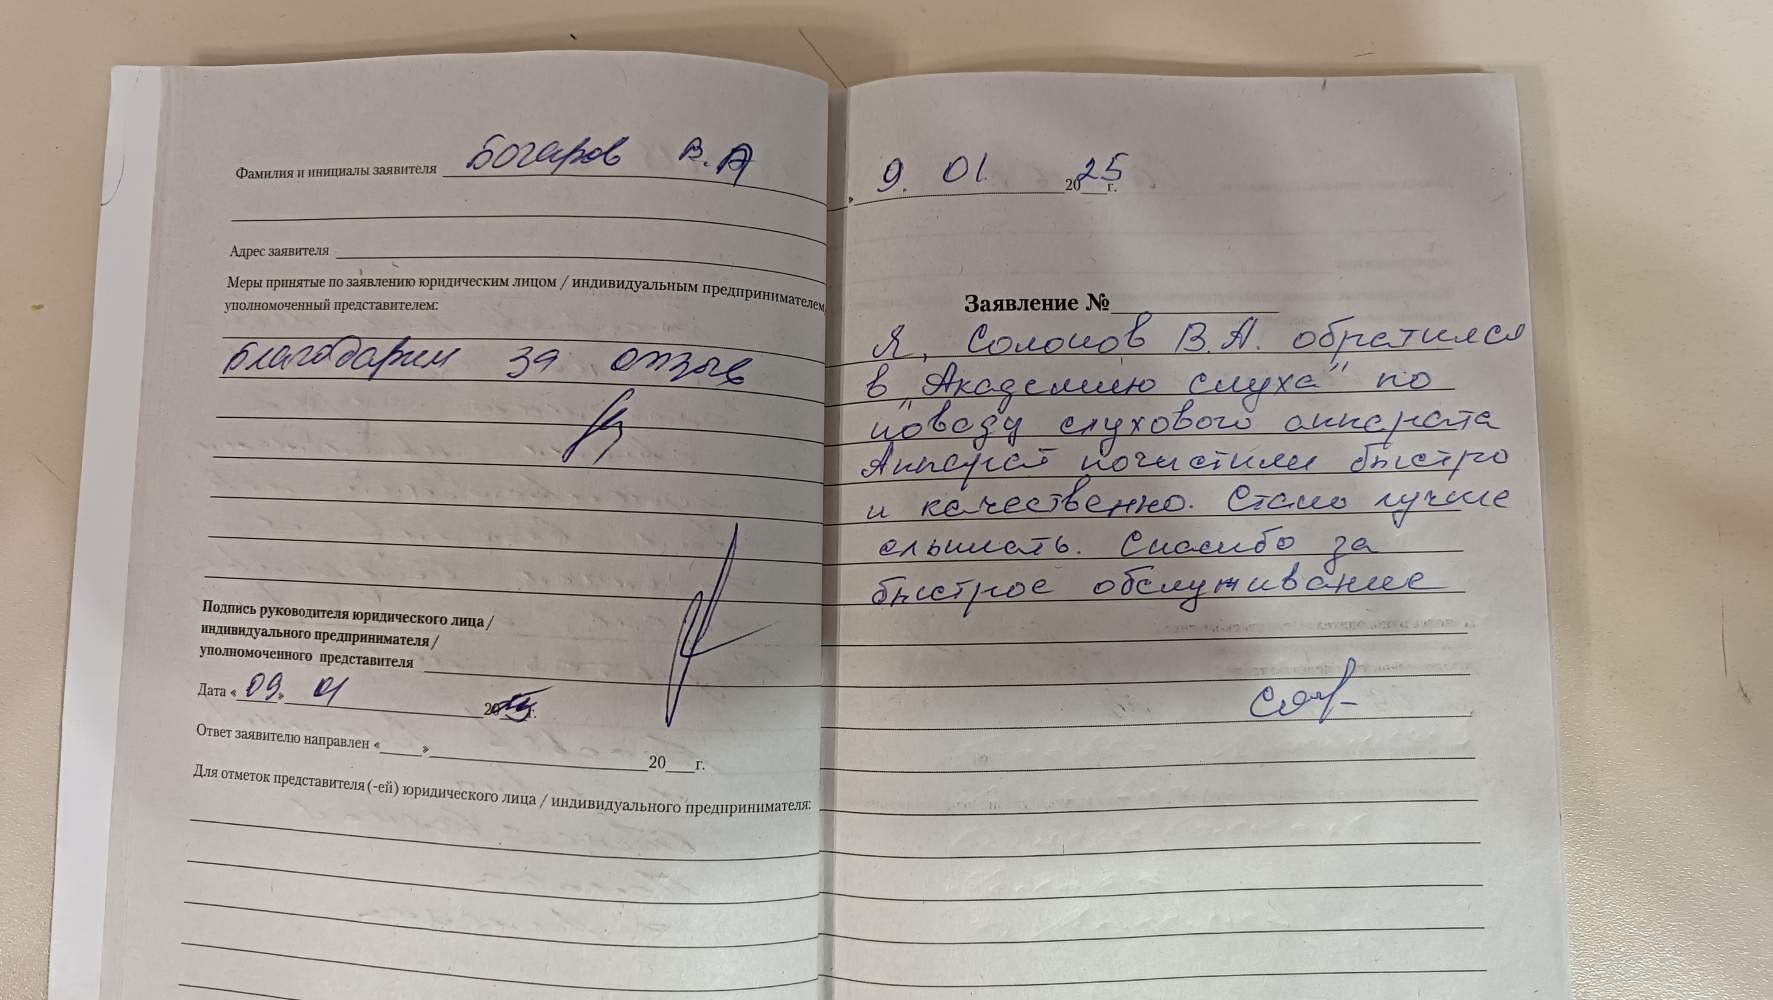 Фамилия и инициалы заявителя Богаров В.А
Адрес заявителя
Меры принятые по заявлению юридическим лицом / индивидуальным предпринимателем,
уполномоченный представителем:
Благодарим за отзыв
Подпись руководителя юридического лица /
индивидуального предпринимателя /
уполномоченного представителя
Дата « 09 » 01 20 г.
Ответ заявителю направлен «____»____ 20___г.
Для отметок представителя (-ей) юридического лица / индивидуального предпринимателя:
» 9. 01. 2025 г.
Заявление №
Я, Солонов В.А. обратился
в "Академию слуха" по
поводу слухового аппарата
Аппарат почистили быстро
и качественно. Стало лучше
слышать. Спасибо за
быстрое обслуживание